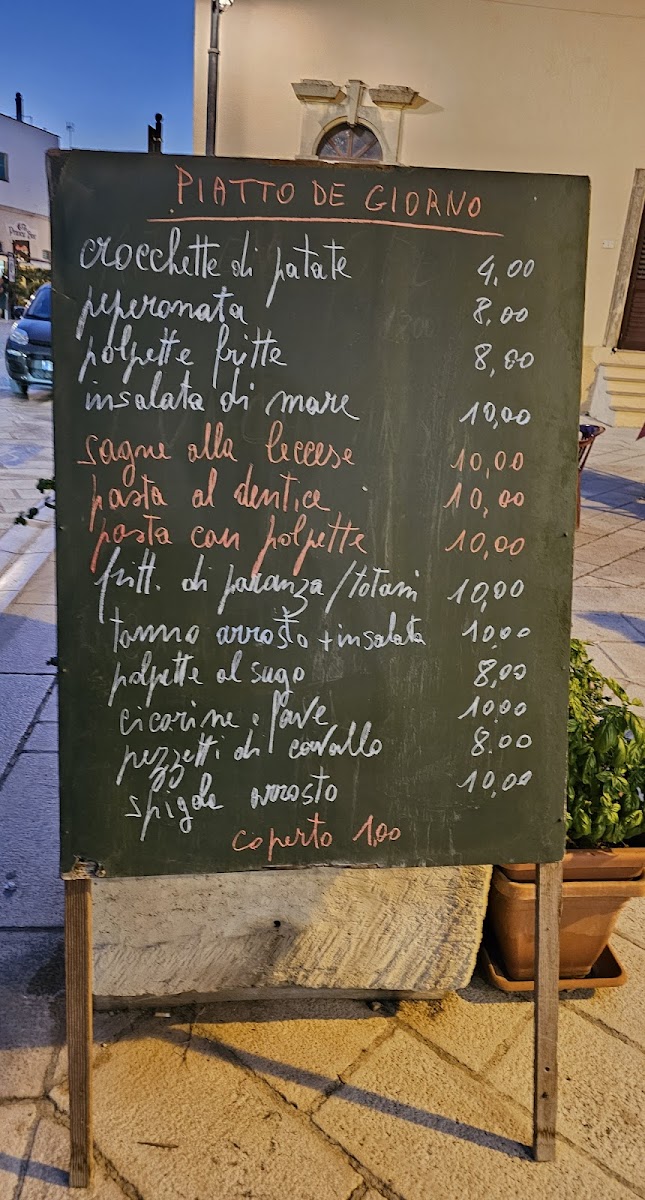 PIATTO DE GIORNO
crocchette di patate 4,00
peperonata 8,00
polpette fritte 8,00
insalata di mare 10,00
sagne alla leccese 10,00
pasta al dentice 10,00
pasta con polpette 10,00
fritt. di paranza/totani 10,00
tonno arrosto + insalata 10,00
polpette al sugo 8,00
cicorine e fave 10,00
pezzetti di cavallo 8,00
spigola arrosto 10,00
coperto 1,00